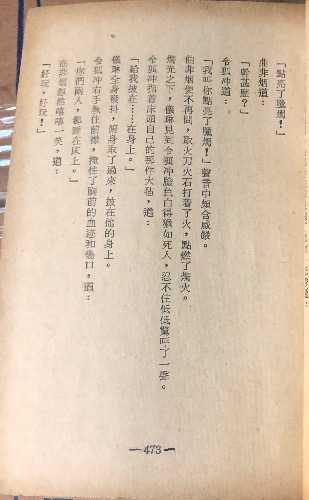 「點亮了臘燭!」
曲非烟道:
「幹甚麼?」
令狐冲道:
「我叫你點亮了臘燭!」聲音中短含威嚴。
曲非烟便不再問,取火刀火石打着了火,點燃了燭火。
燭光之下,儀琳見到令狐冲臉色白得猶如死人,忍不住低低驚呼了一聲。
令狐冲指着床頭自己的那件大氅,道:
「給我披在……在身上。」
儀琳全身發抖,俯身取了過來,披在他的身上。
令狐冲右手拉住前襟,掩住了胸前的血迹和傷口,道:
「你們兩人,都睡在床上。」
曲非烟嘻嘻一笑,道:
「好玩,好玩!」
—473—